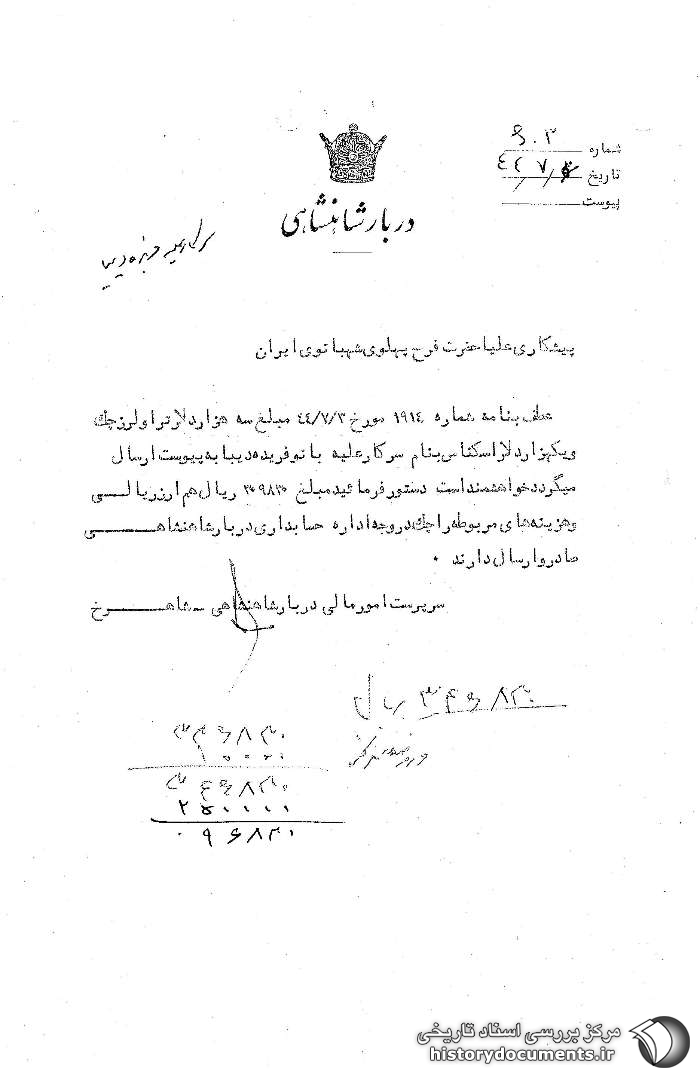 شماره ۶۰۳
تاریخ
پیوست
دربار شاهنشاهی
سرکار علیه فریده دیبا
پیشکاری علیاحضرت فرح پهلوی شهبانوی ایران
عطف بنامه شماره ۱۹۱۴ مورخ ۴۴/۷/۳ مبلغ سه هزار دلار تراولرز چک
و یکهزار دلار اسکناس بنام سرکار علیه بانو فریده دیبا به پیوست ارسال
میگردد خواهشمند است دستور فرمائید مبلغ ریال هم ارز ریالی
و هزینه های مربوطه را چک در وجه اداره حسابداری دربار شاهنشاهی
صادر و ارسال دارند ۰
سرپرست امور مالی دربار شاهنشاهی ـ شاهرخ
ریال
۲۵۰۰۰۰
۰۹۶۸۳۰
مرکز بررسی اسناد تاریخی
historydocuments.ir